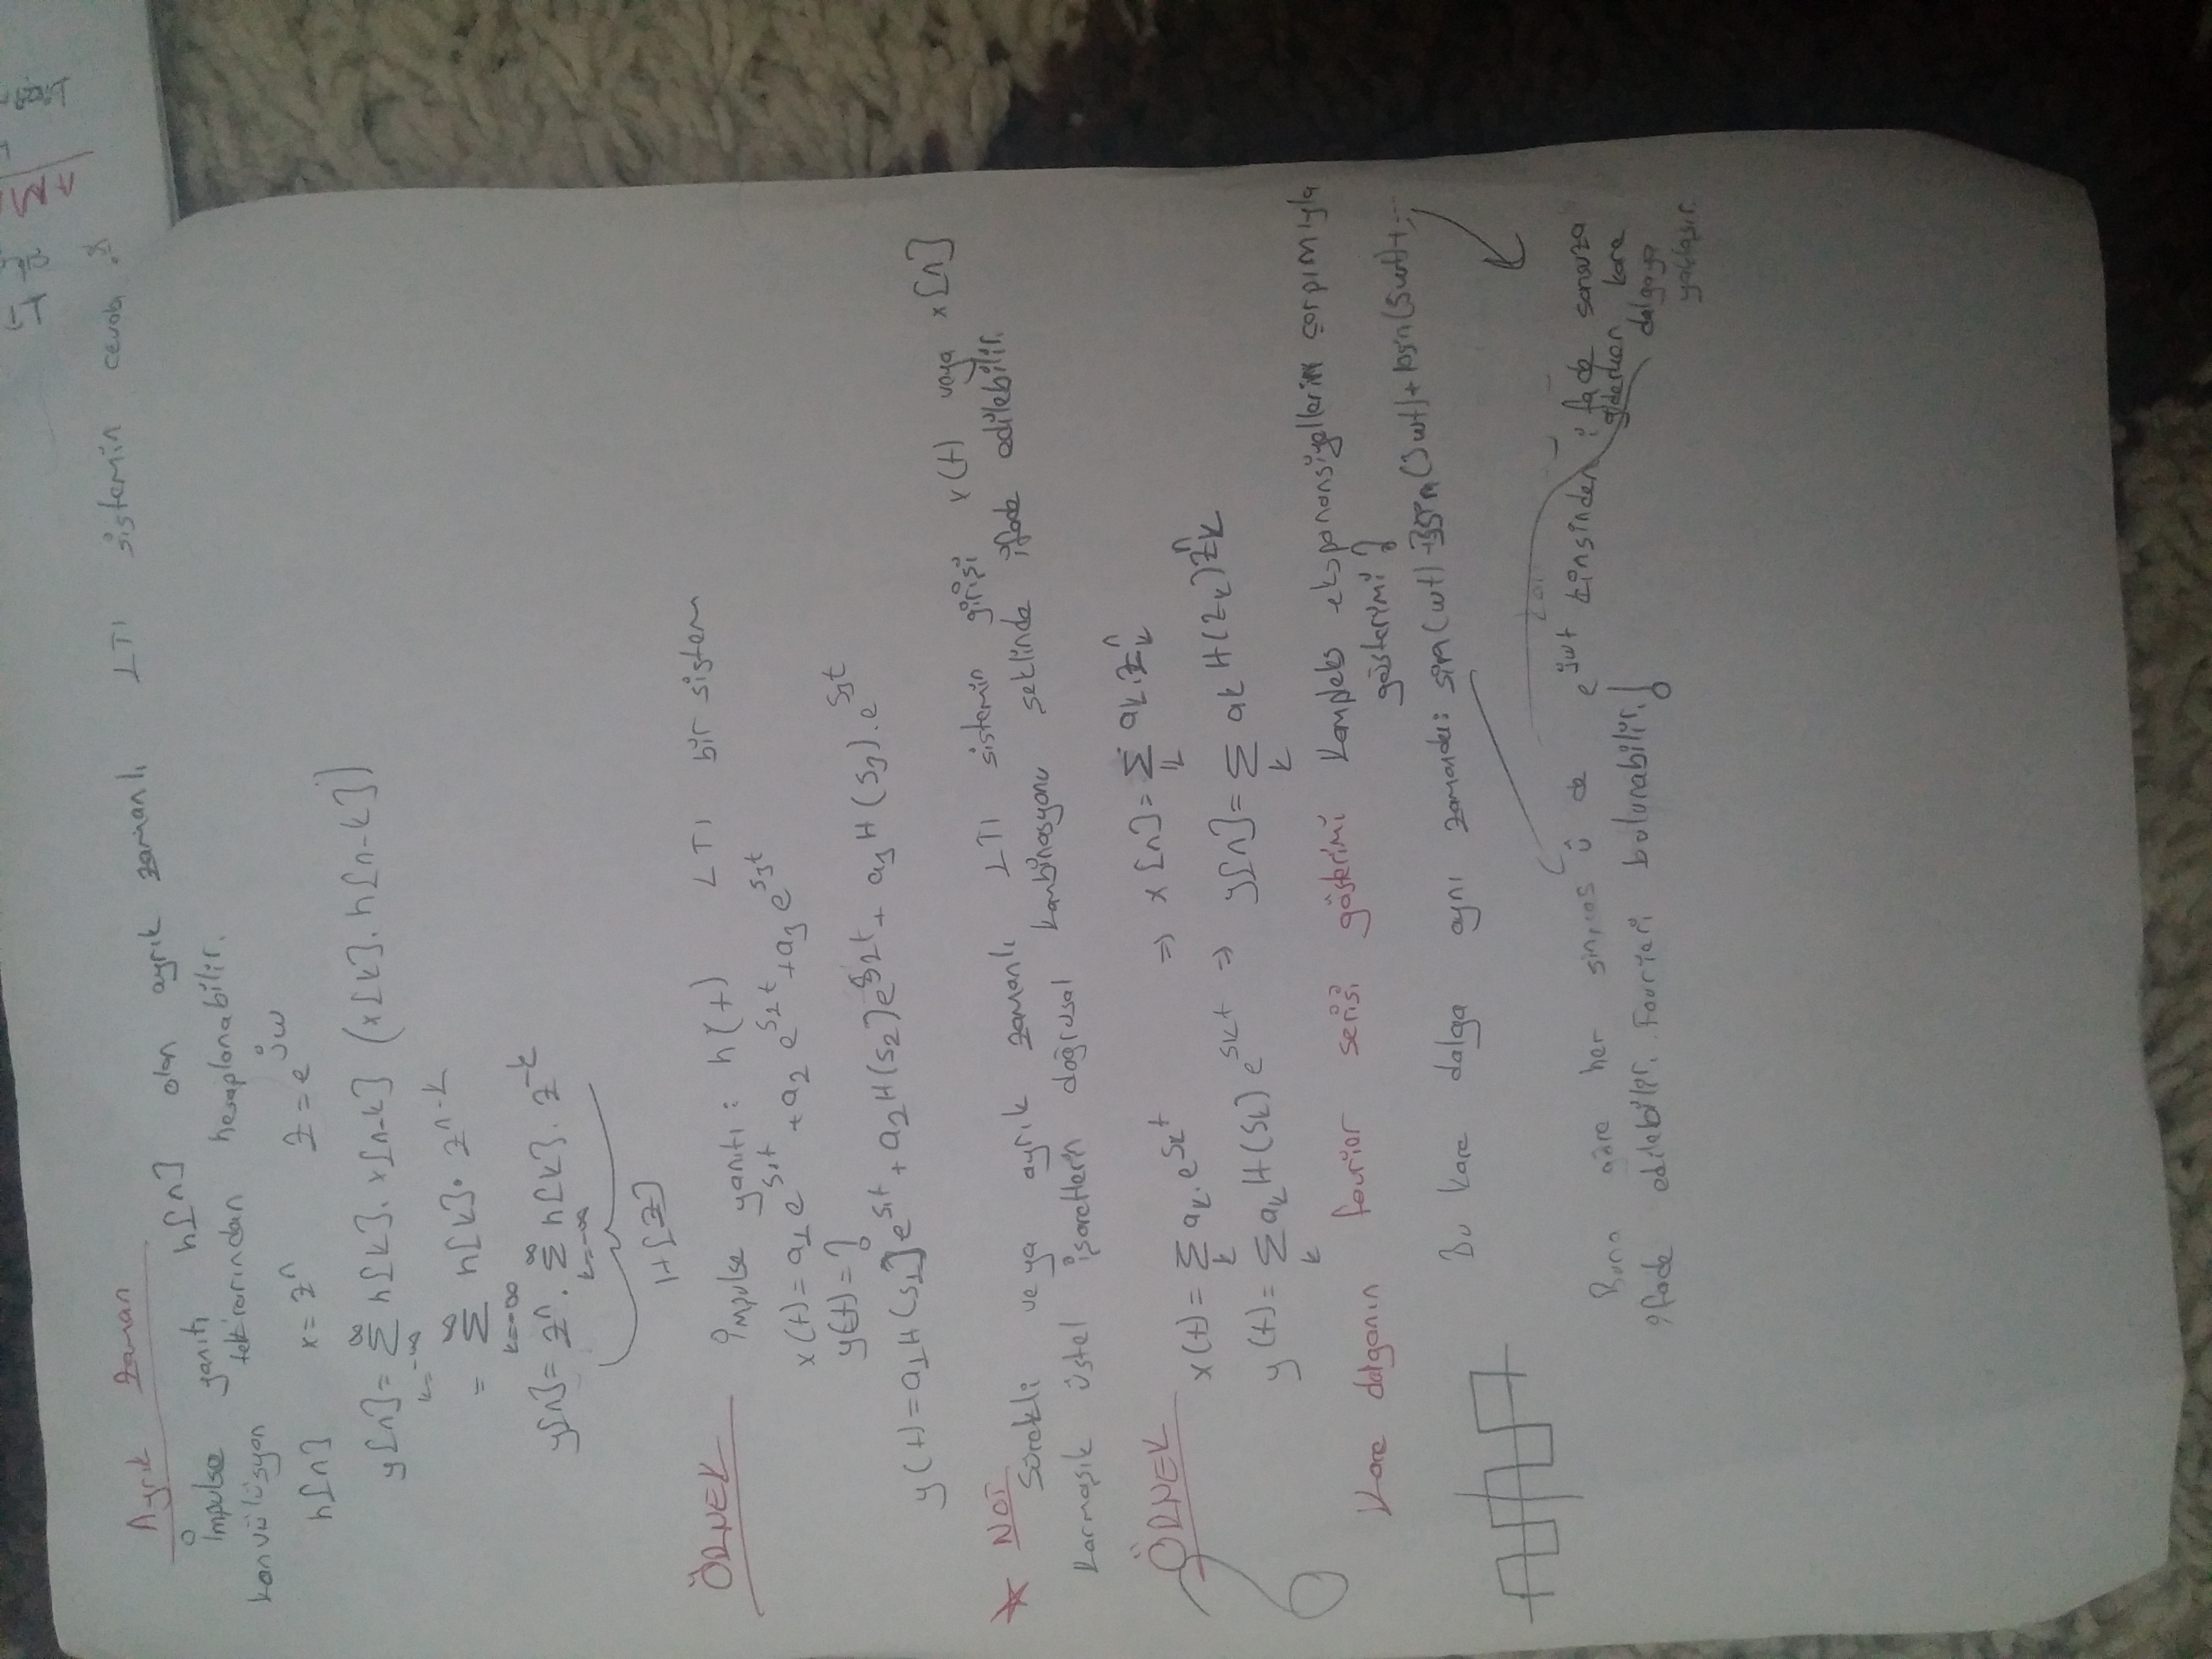 Ayrık Zaman
İmpulse yanıtı h[n] olan ayrık zamanlı LTI sistemin cevabı
konvülüsyon tekrarından hesaplanabilir.
h[n] x = z^n z = e^jω
y[n] = Σ h[k]. x[n-k] (x[k]. h[n-k])
k=-∞ ∞
= Σ h[k]. z^n-k
k=-∞ ∞
y[n] = z^n. Σ h[k]. z^-k
k=-∞ ∞
H[z]
ÖRNEK
İmpulse yanıtı: h(t) LTI bir sistem
x(t) = a1 e^s1t + a2 e^s2t + a3 e^s3t
y(t) = ?
y(t) = a1 H(s1) e^s1t + a2 H(s2) e^s2t + a3 H(s3). e^s3t
★ NOT
Sürekli veya ayrık zamanlı LTI sistemin girişi x(t) veya x[n]
karmaşık üstel işaretlerin doğrusal kombinasyonu seklinde ifade edilebilir.
ÖRNEK
x(t) = Σ ak. e^skt => x[n] = Σ ak. zk^n
k k
y(t) = Σ ak H(sk) e^skt => y[n] = Σ ak H(zk) zk^n
k k
Kare dalganın fourier serisi gösterimi kompleks eksponansiyellerin çarpımıyla
gösterimi?
Bu kare dalga aynı zamanda: sin(wt) + sin(3wt) + sin(5wt) + ...
Buna göre her sinüs ü de e^jwt cinsinden ifade
edilebilir. Fourieri bulunabilir!
sonsuza
giderken kare
dalgaya
yaklaşır.